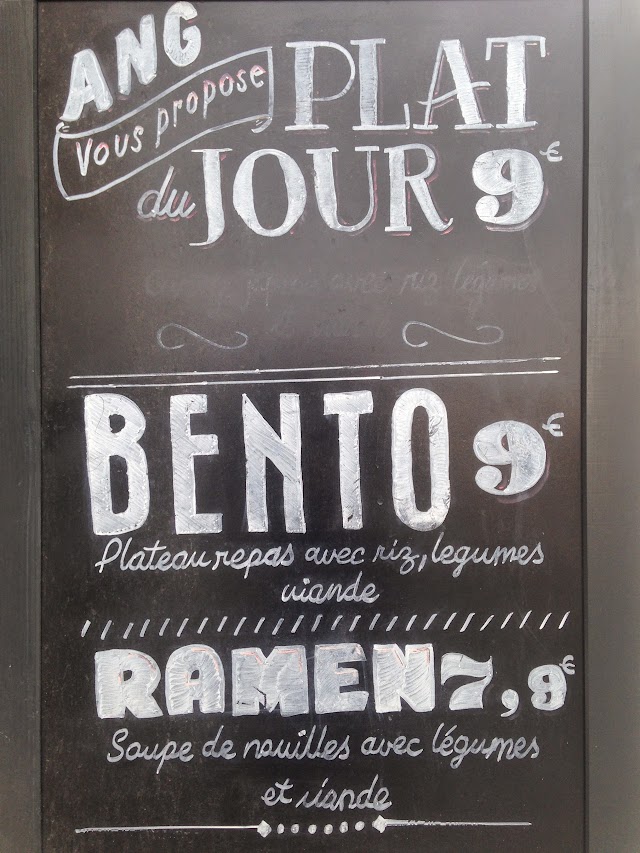 ANG
Vous propose
PLAT
du JOUR 9€
avec riz légumes
BENTO 9€
Plateau repas avec riz, legumes
viande
RAMEN 7,9€
Soupe de nouilles avec légumes
et viande